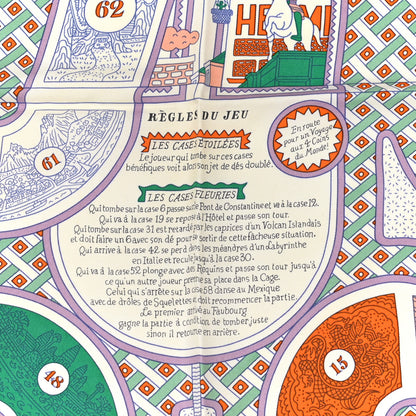 62
HERM
RÈGLES DU JEU
LES CASES ÉTOILÉES
Le joueur qui tombe sur ces cases
bénéfiques voit alors son jet de dés doublé.
En route
pour un Voyage
aux 4 Coins
du Monde!
61
LES CASES FLEURIES
Qui tombe sur la case 6 passe sur le Pont de Constantine et va à la case 12.
Qui va à la case 19 se repose à l'Hôtel et passe son tour.
Qui tombe sur la case 31 est retardé par les caprices d'un Volcan Islandais
et doit faire un 6 avec son dé pour sortir de cette fâcheuse situation.
Qui arrive à la case 42 se perd dans les méandres d'un Labyrinthe
en Italie et recule jusqu'à la case 30.
Qui va à la case 52 plonge avec des Requins et passe son tour jusqu'à
ce qu'un autre joueur prenne sa place dans la Cage.
Celui qui s'arrête sur la case 58 danse au Mexique
avec de drôles de Squelettes et doit recommencer la partie.
Le premier arrivé au Faubourg
gagne la partie à condition de tomber juste
sinon il retourne en arrière.
48
15